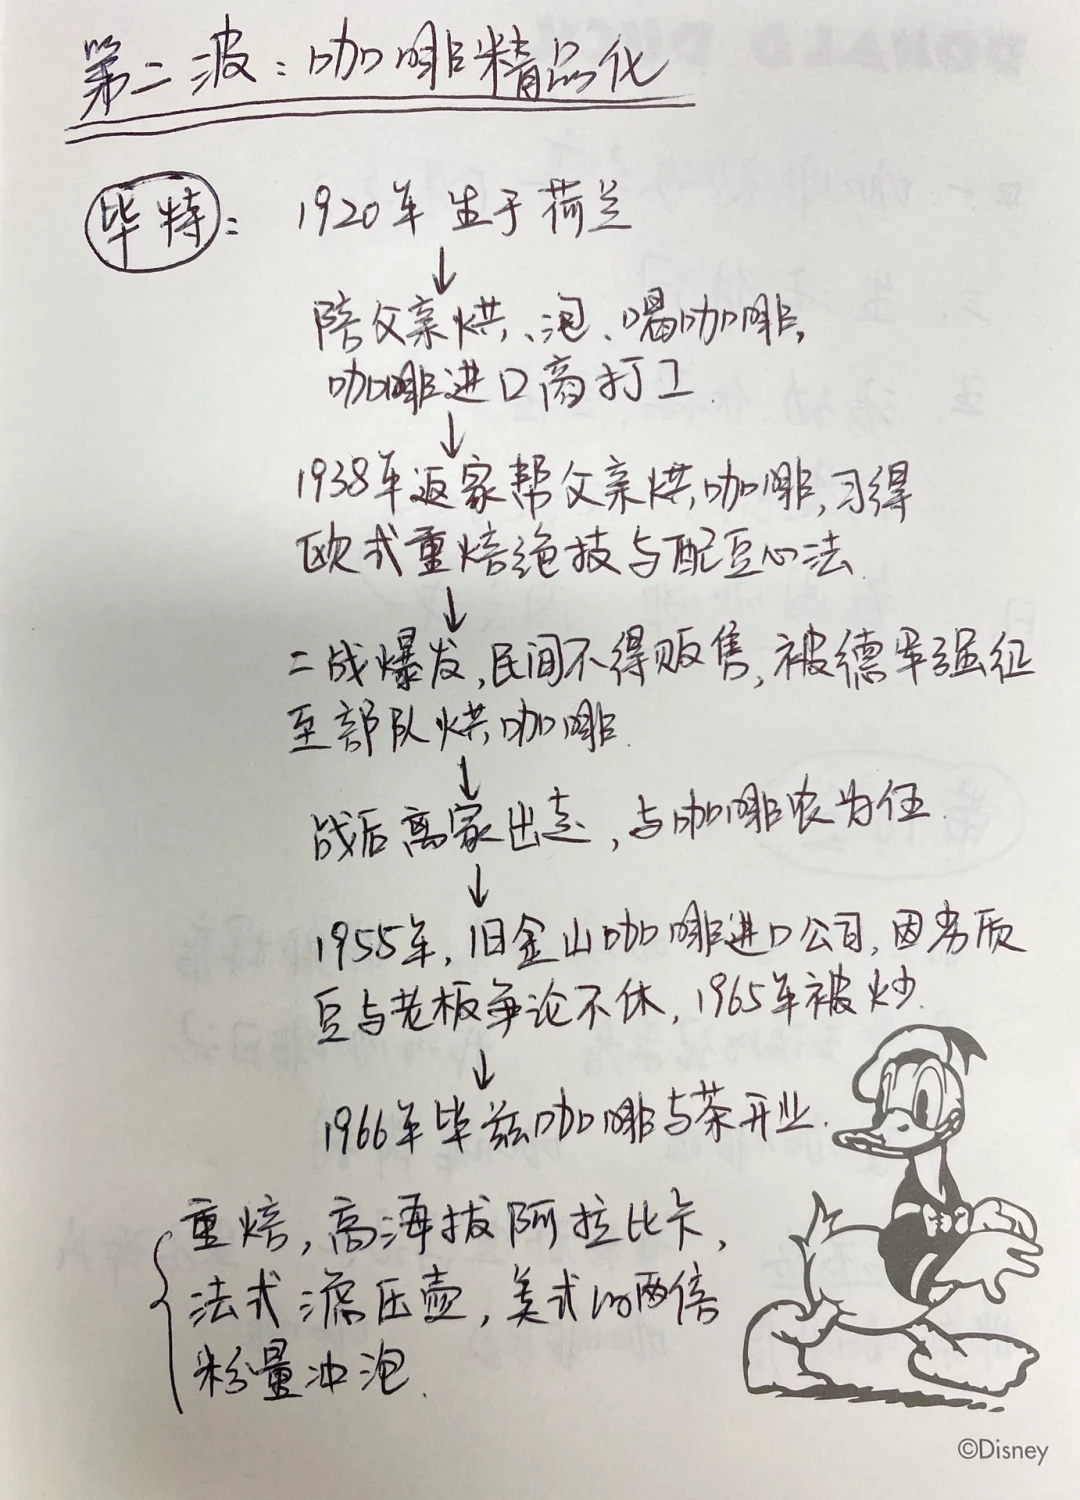 第二波：咖啡精品化
毕特：1920年生于荷兰
↓
陪父亲烘、泡、喝咖啡，
咖啡进口商打工.
↓
1938年返家帮父亲烘咖啡，习得
欧式重焙绝技与配豆心法.
↓
二战爆发，民间不得贩售，被德军强征
至部队烘咖啡.
↓
战后离家出走，与咖啡农为伍.
↓
1955年，旧金山咖啡进口公司，因劣质
豆与老板争论不休，1965年被炒.
↓
1966年毕兹咖啡与茶开业.
重焙，高海拔阿拉比卡，
法式滤压壶，美式的两倍
粉量冲泡.
©Disney